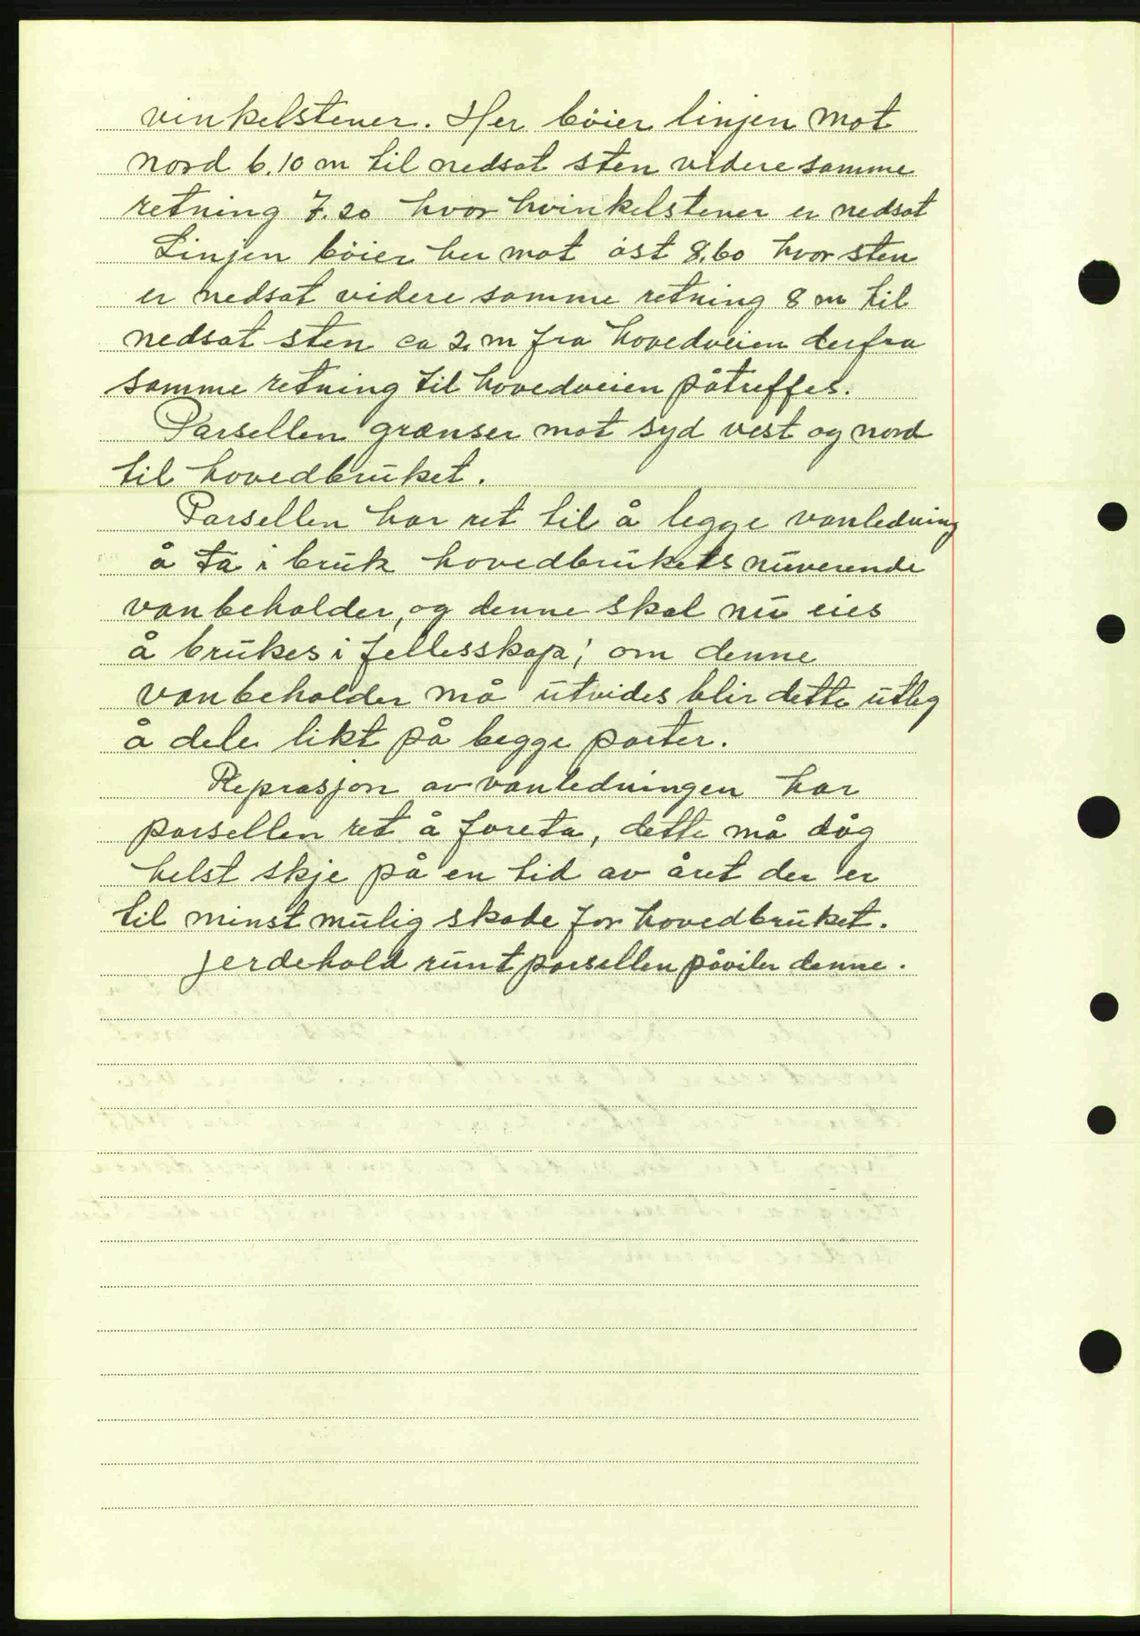 vinkelstener. Her bøier linjen mot
nord 6.10 m til nedsat sten videre samme
retning 7.20 hvor hvinkelstener er nedsat
Linjen bøier her mot øst 8,60 hvor sten
er nedsat videre samme retning 8 m til
nedsat sten ca 2 m fra hovedveien derfra
samme retning til hovedveien påtreffes.
Parsellen grænser mot syd vest og nord
til hovedbruket.
Parsellen har ret til å legge vanledning
å ta i bruk hovedbrukets nuverende
vanbeholder, og denne skal nu eies
å brukes i fellesskap; om denne
vanbeholder må utvides blir dette utleg
å dele likt på begge parter.
Reprasjon av vanledningen har
parsellen ret å foreta, dette må dåg
helst skje på en tid av året der er
til minst mulig skade for hovedbruket.
Jerdehold runt parsellen påviler denne.